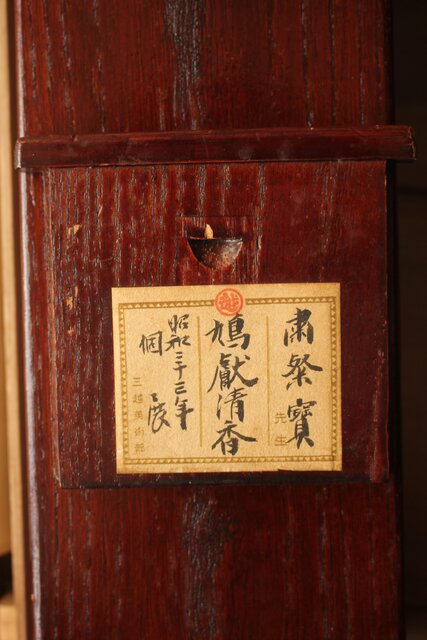 肅粲寶
先生
鳩献清香
昭和三十三年
個展
三越美術部
越